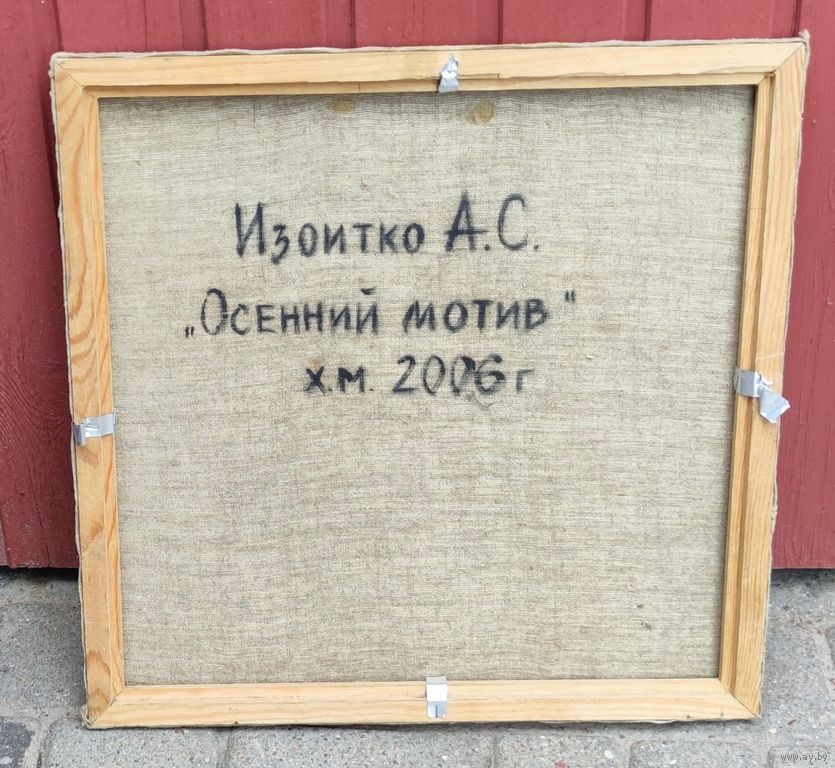 Изоитко А.С.
„Осенний мотив"
х.м. 2006 г
www.ay.by